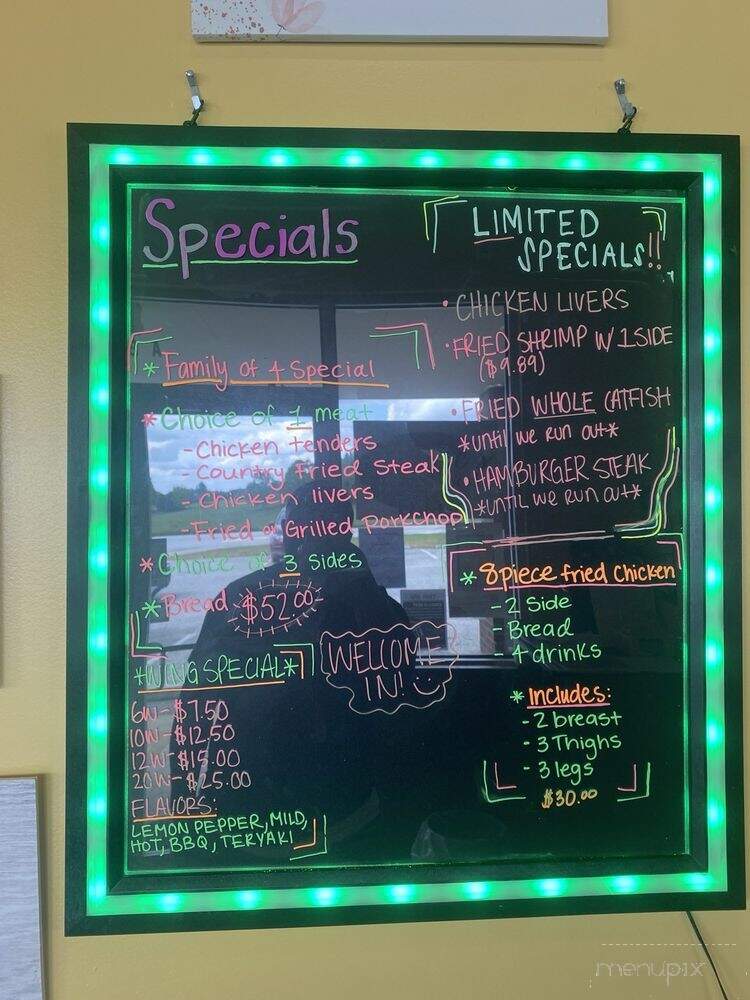 Specials
* Family of 4 Special
* Choice of 1 meat
- Chicken tenders
- Country Fried Steak
- Chicken livers
- Fried or Grilled Porkchop
* Choice of 3 sides
* Bread $52.00
*WING SPECIAL*
6W-$7.50
10W-$12.50
12W-$15.00
20W-$25.00
FLAVORS:
LEMON PEPPER, MILD,
HOT, BBQ, TERYAKI
WELCOME
IN!
LIMITED
SPECIALS!!
• CHICKEN LIVERS
• FRIED SHRIMP W/ 1 SIDE
($9.89)
• FRIED WHOLE CATFISH
*UNTIL WE RUN OUT*
• HAMBURGER STEAK
*UNTIL WE RUN OUT*
* 8 piece fried chicken
- 2 Side
- Bread
- 4 drinks
* Includes:
- 2 breast
- 3 Thighs
- 3 legs
$30.00
menupix